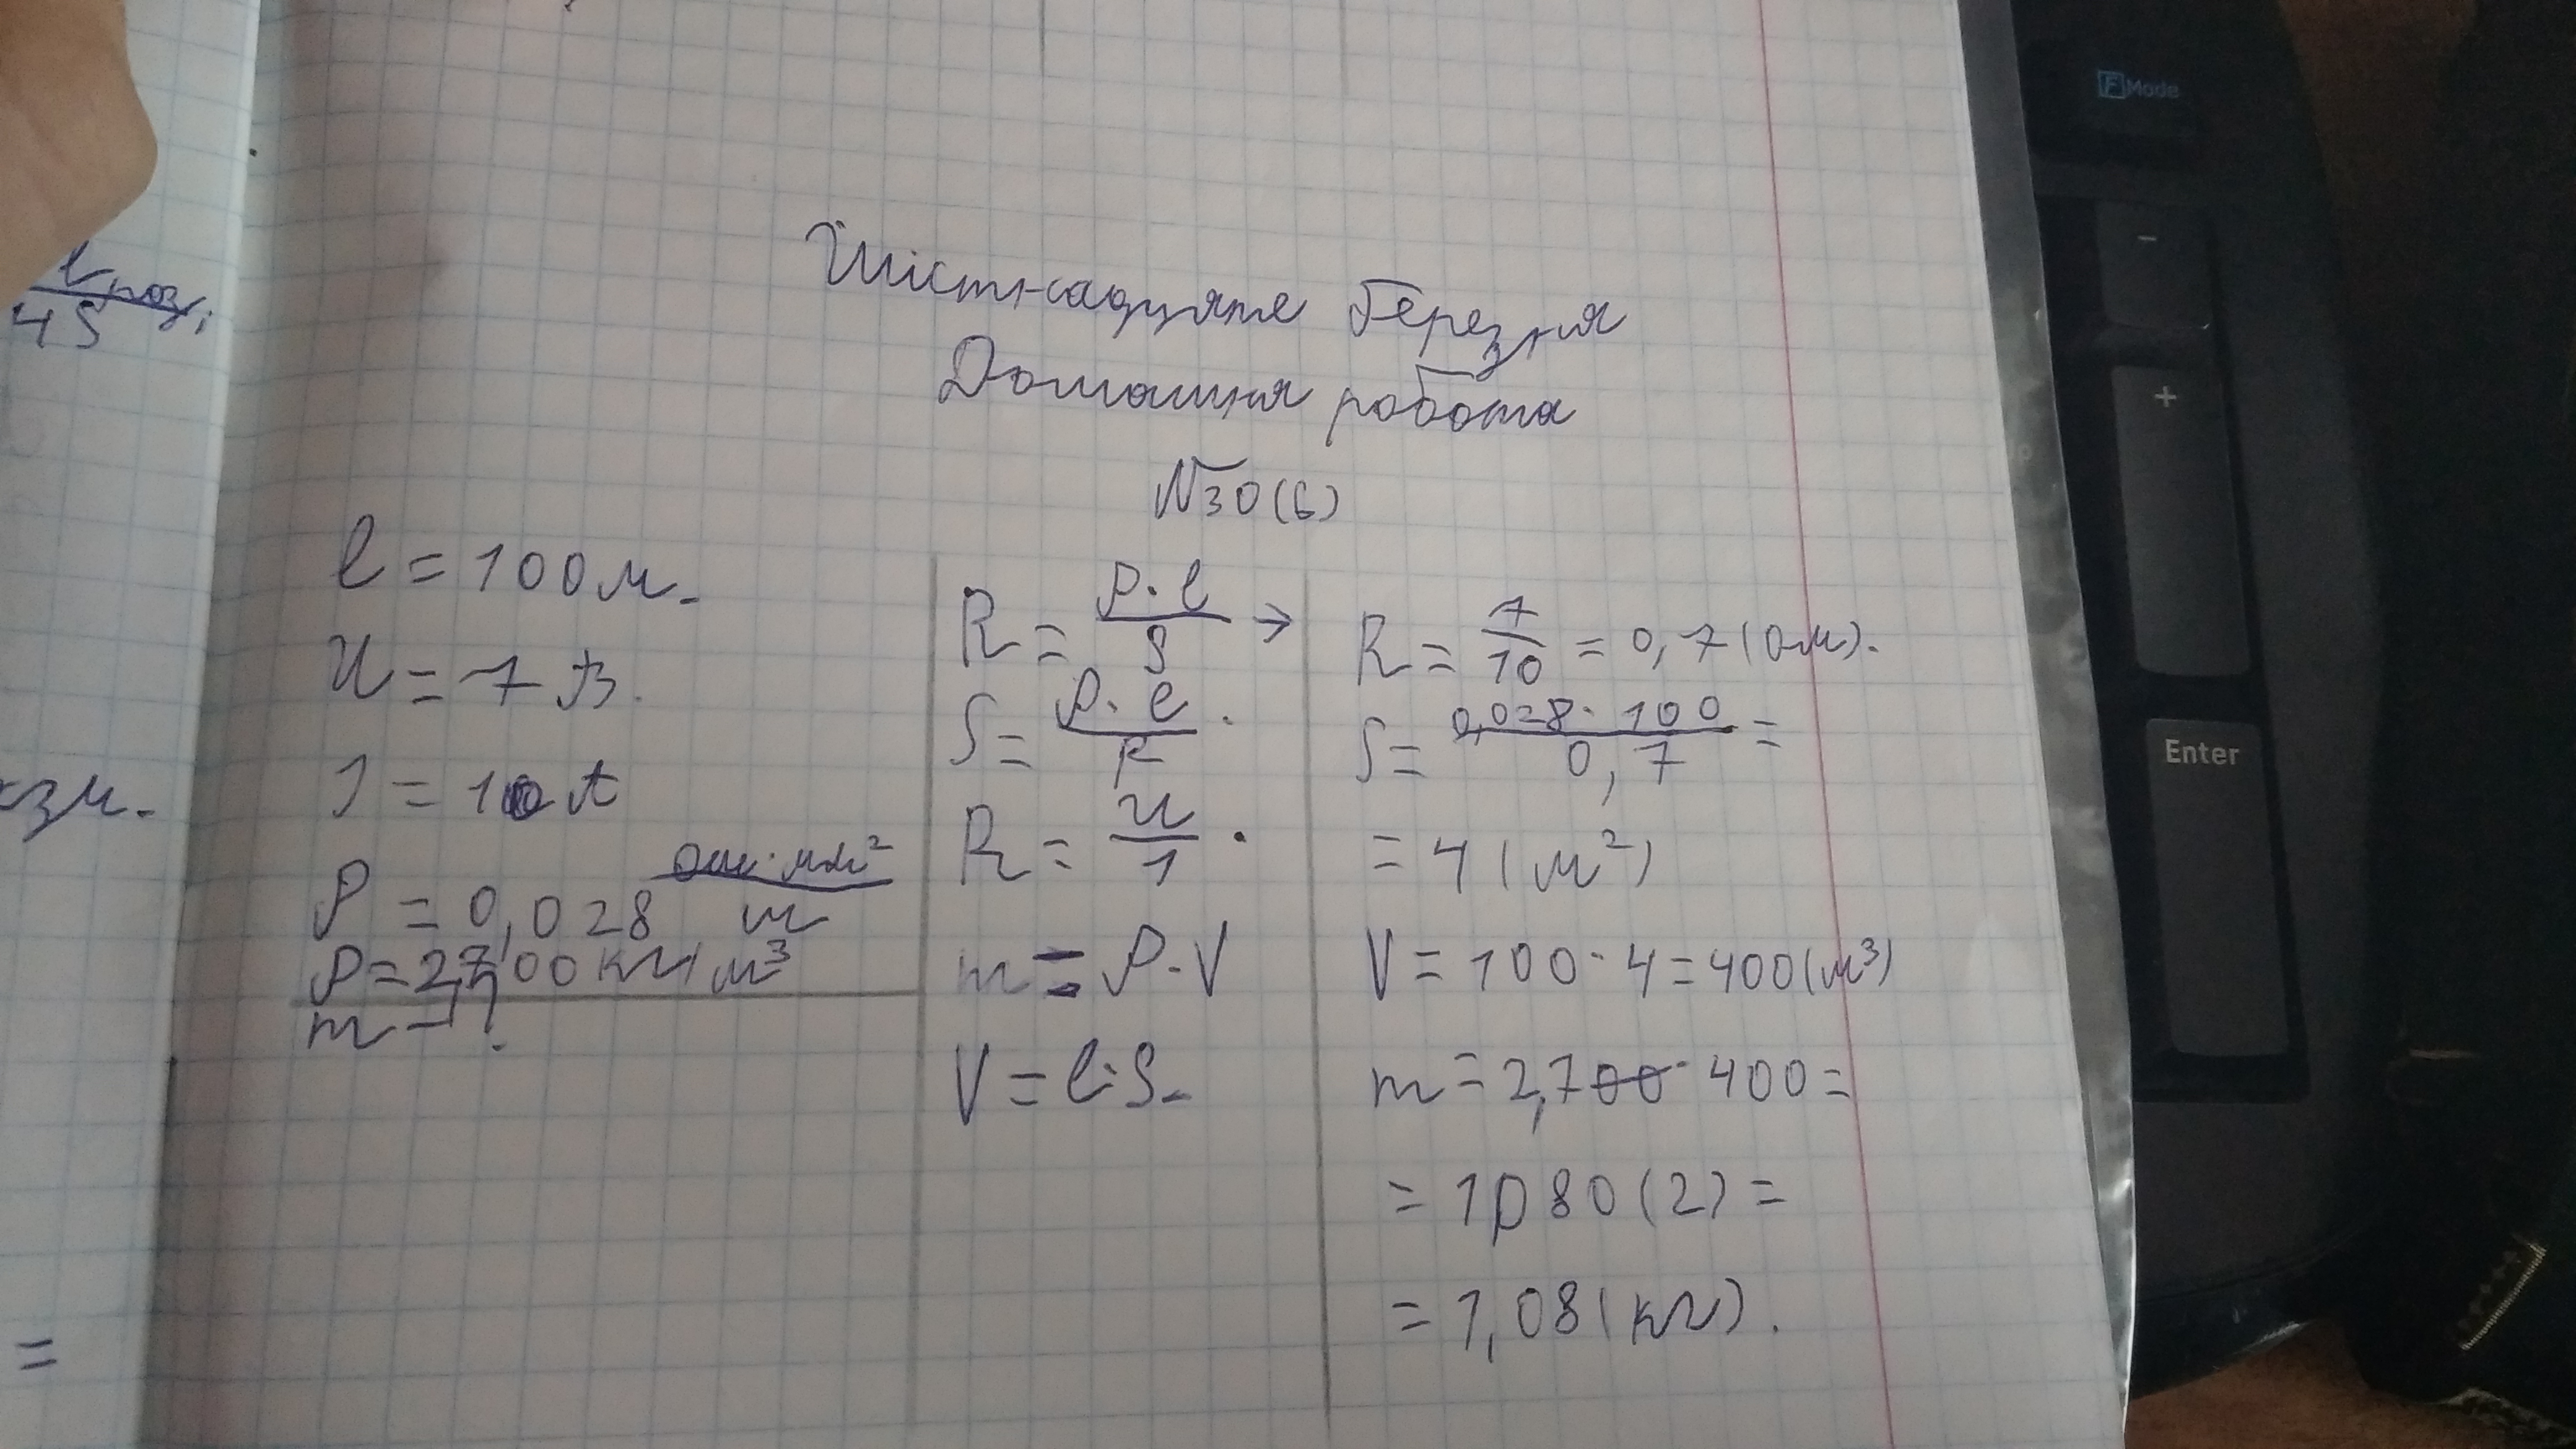 Шістнадцяте березня
Домашня робота
№30(6)
l = 100м.
U = 7 В.
I = 10 А
ρ = 0,028 Ом·мм²/м
ρ = 2700 кг/м³
m - ?
R = ρ·l/S →
S = ρ·l/R.
R = U/I.
m = ρ·V
V = l·S.
R = 7/10 = 0,7 (Ом).
S = 0,028·100/0,7 =
= 4 (м²)
V = 100·4 = 400 (м³)
m = 2,700·400 =
= 1080 (г) =
= 1,08 (кг).
l поз,
4 S
ізм.
=
F Mode
-
+
Enter